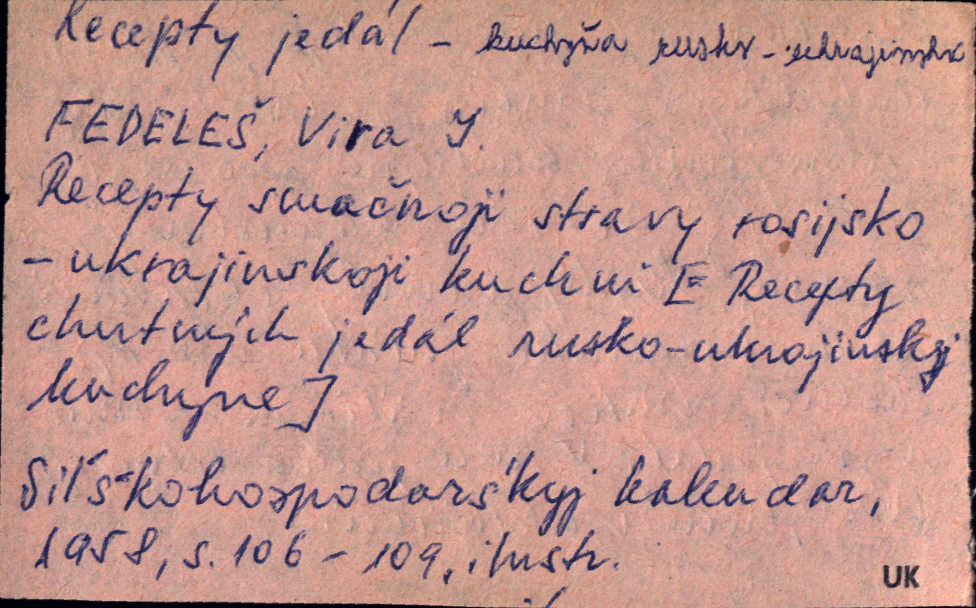 Recepty jedál - kuchyňa rusko-ukrajinská
FEDELEŠ, Vira I.
Recepty smačnoji stravy rosijsko
-ukrajinskoji kuchni [= Recepty
chutných jedál rusko-ukrajinskej
kuchyne]
Siľśkohospodarśkyj kalendar,
1958, s. 106-109, ilustr.
UK